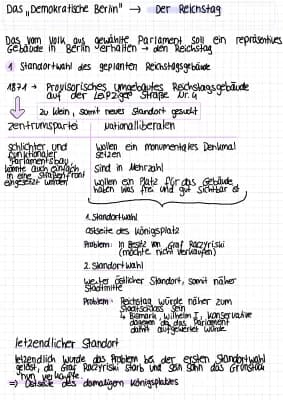 Das „Demokratische Berlin" → Der Reichstag
Das vom Volk aus gewählte Parlament soll ein repräsentives
Gebäude in Berlin erhalten → den Reichstag
1 Standortwahl des geplanten Reichstagsgebäude
1871 → Provisorisches umgebautes Reichstagsgebäude
auf der Leipziger Straße Nr.4
zu klein, somit neues Standort gesucht
Zentrumspartei
Nationalliberalen
schlichter und
funktionaler
Parlamentsbau
könnte auch einfach
in eine Straßenfront
eingesetzt werden
wollen ein monumentales Denkmal
setzen
sind in Mehrzahl
wollen ein Platz für das Gebäude,
haben was frei und gut sichtbar ist
1. Standortwahl
Ostseite des Königsplatz
Problem: In Besitz von Graf Raczyński
(möchte nicht verkaufen)
2. Standortwahl
weiter östlicher Standort, somit näher
Stadtmitte
Problem: Reichstag würde näher zum
Stadtschloss sein
↳ Bismarck, Wilhelm I, konservative
dagegen da das Parlament
damit aufgewertet würde
letzendlicher Standort
letzendlich wurde das Problem bei der ersten Standortwahl
gelöst, da Graf Raczyński starb und sein Sohn das Grundstück
nun verkaufte.
⇒ Ostseite des damaligen Königsplatzes